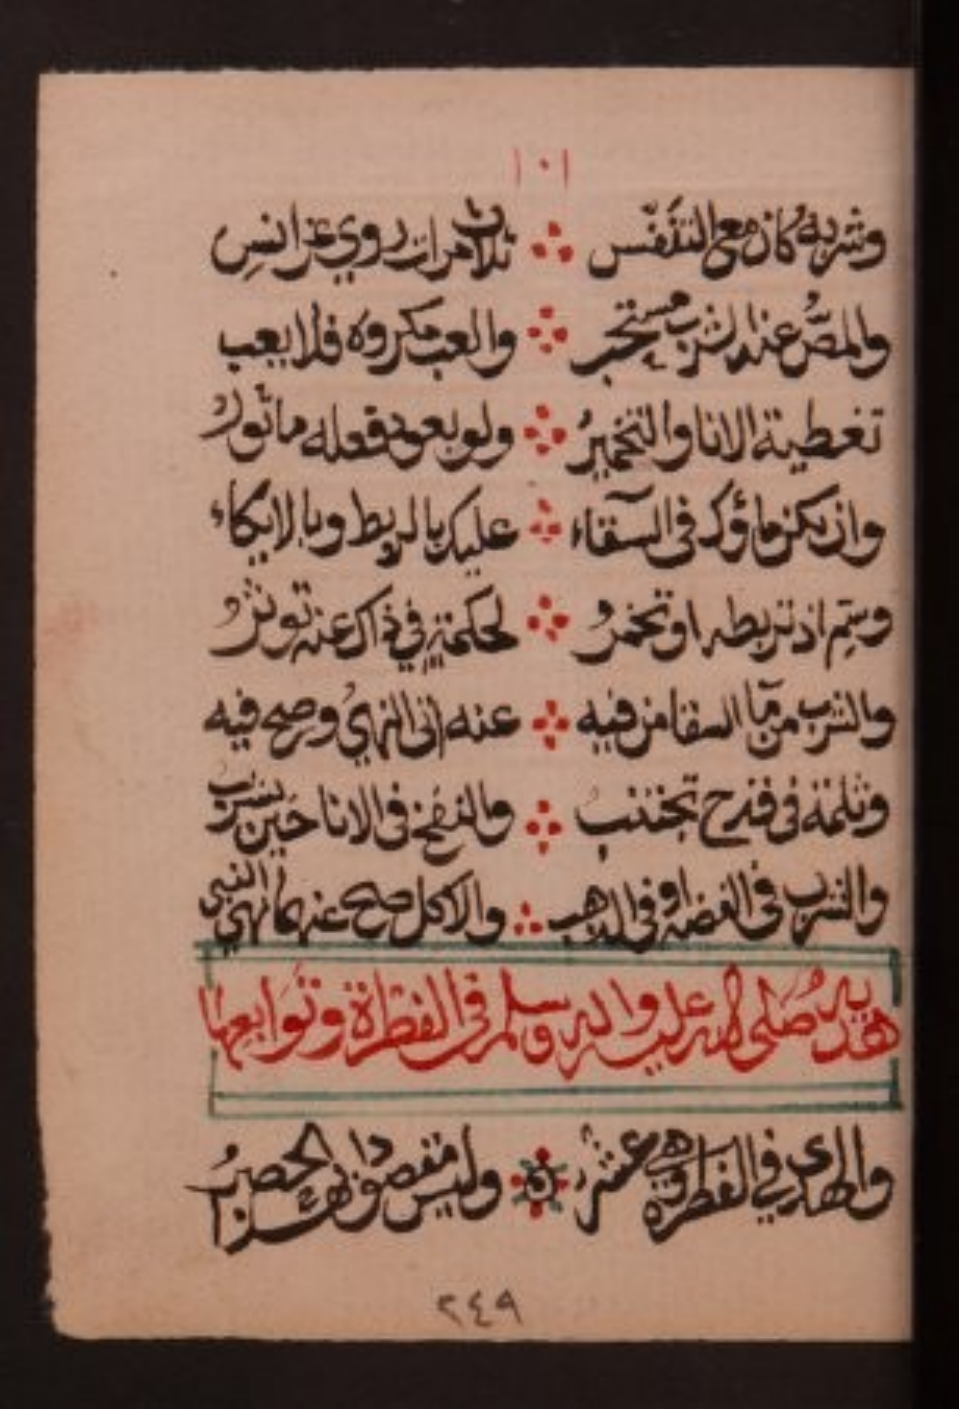 ١٠١
وشربه كان مع التنفس ثلاث مرات روي عن انس
والمصّ عند الشرب مستحب والعب مكروه فلا يعب
تغطية الانا والتخمير ولو بعود فعله ماثور
وان يكن ماؤك في السقاء عليك بالربط وبالايكاء
وسَمِّ اذ تربطه او تخمر لحكمة في ذاك عنه تؤثر
والشرب من مآ السقا من فيه عنه اتى النهي وصح فيه
وثلمة في قدح تجتنب والنفخ في الانا حين يشرب
والشرب في الفضه او في الذهب والاكل صح عنهما نهي النبي
هديه صلى الله عليه واله وسلم في الفطراة وتوابعها
والهدي في الفطرة وهي عشر وليس مقصودا بهذا الحصر
٢٤٩